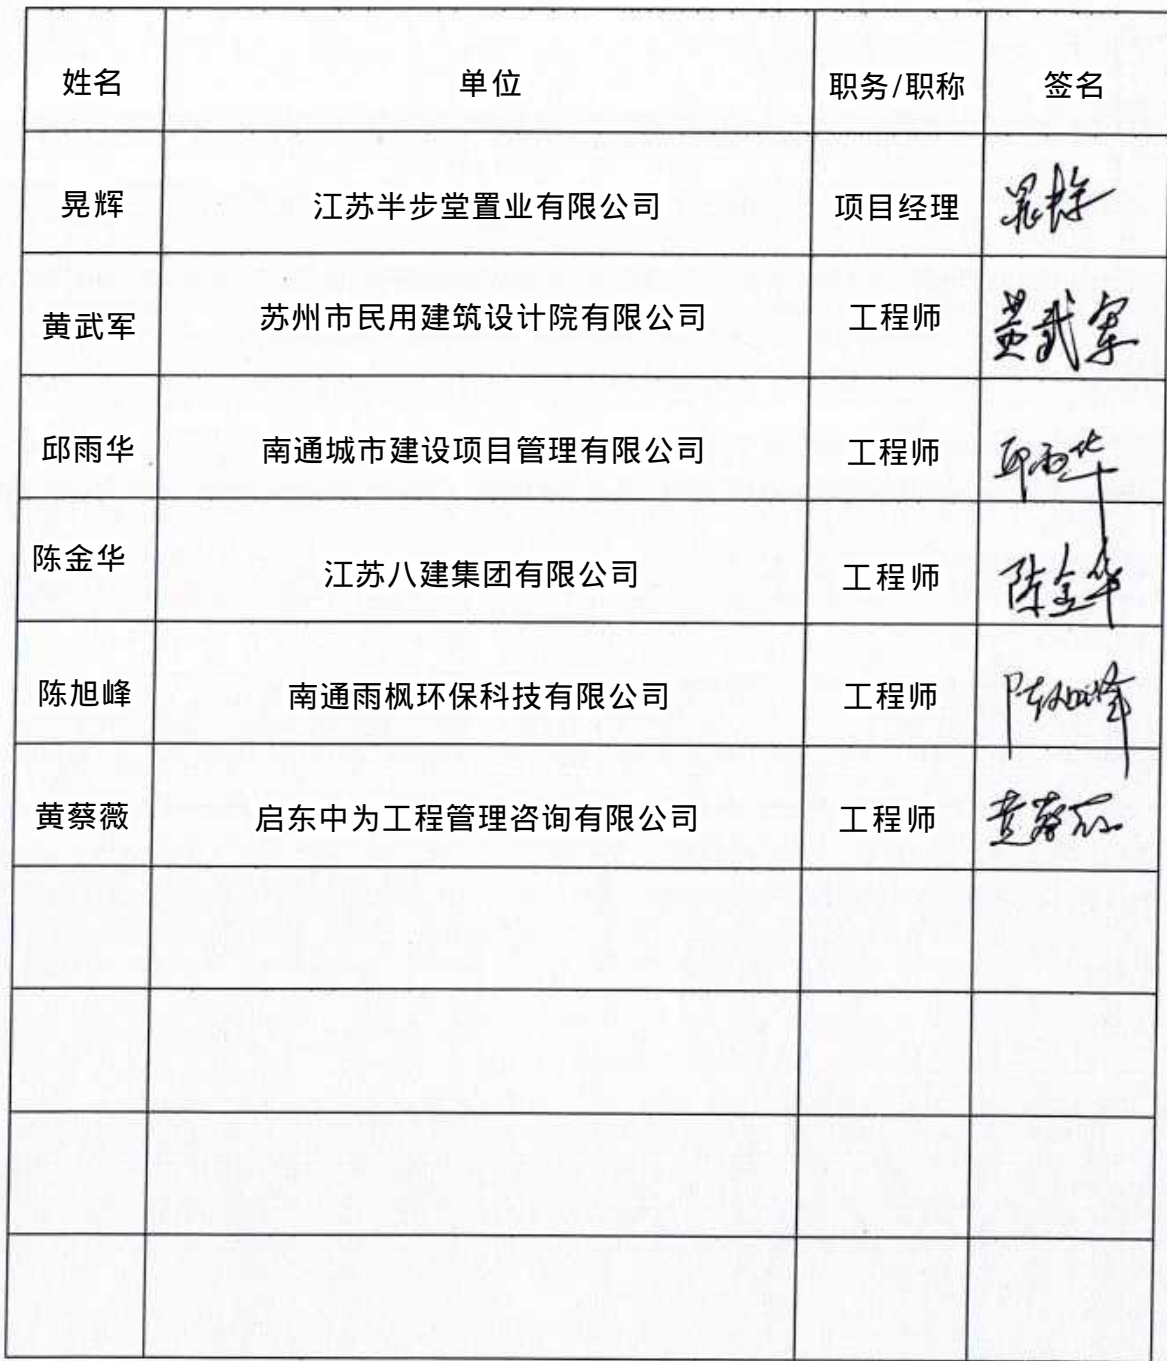 姓名 单位 职务/职称 签名
晃辉 江苏半步堂置业有限公司 项目经理
黄武军 苏州市民用建筑设计院有限公司 工程师 黄武军
邱雨华 南通城市建设项目管理有限公司 工程师 邱雨华
陈金华 江苏八建集团有限公司 工程师 陈金华
陈旭峰 南通雨枫环保科技有限公司 工程师 陈旭峰
黄蔡薇 启东中为工程管理咨询有限公司 工程师 黄蔡薇